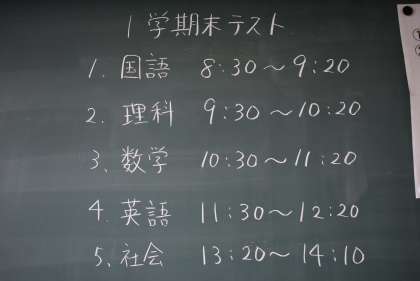 1学期末テスト
1. 国語 8:30〜9:20
2. 理科 9:30〜10:20
3、数学 10:30〜11:20
4. 英語 11:30〜12:20
5、社会 13:20〜14:10